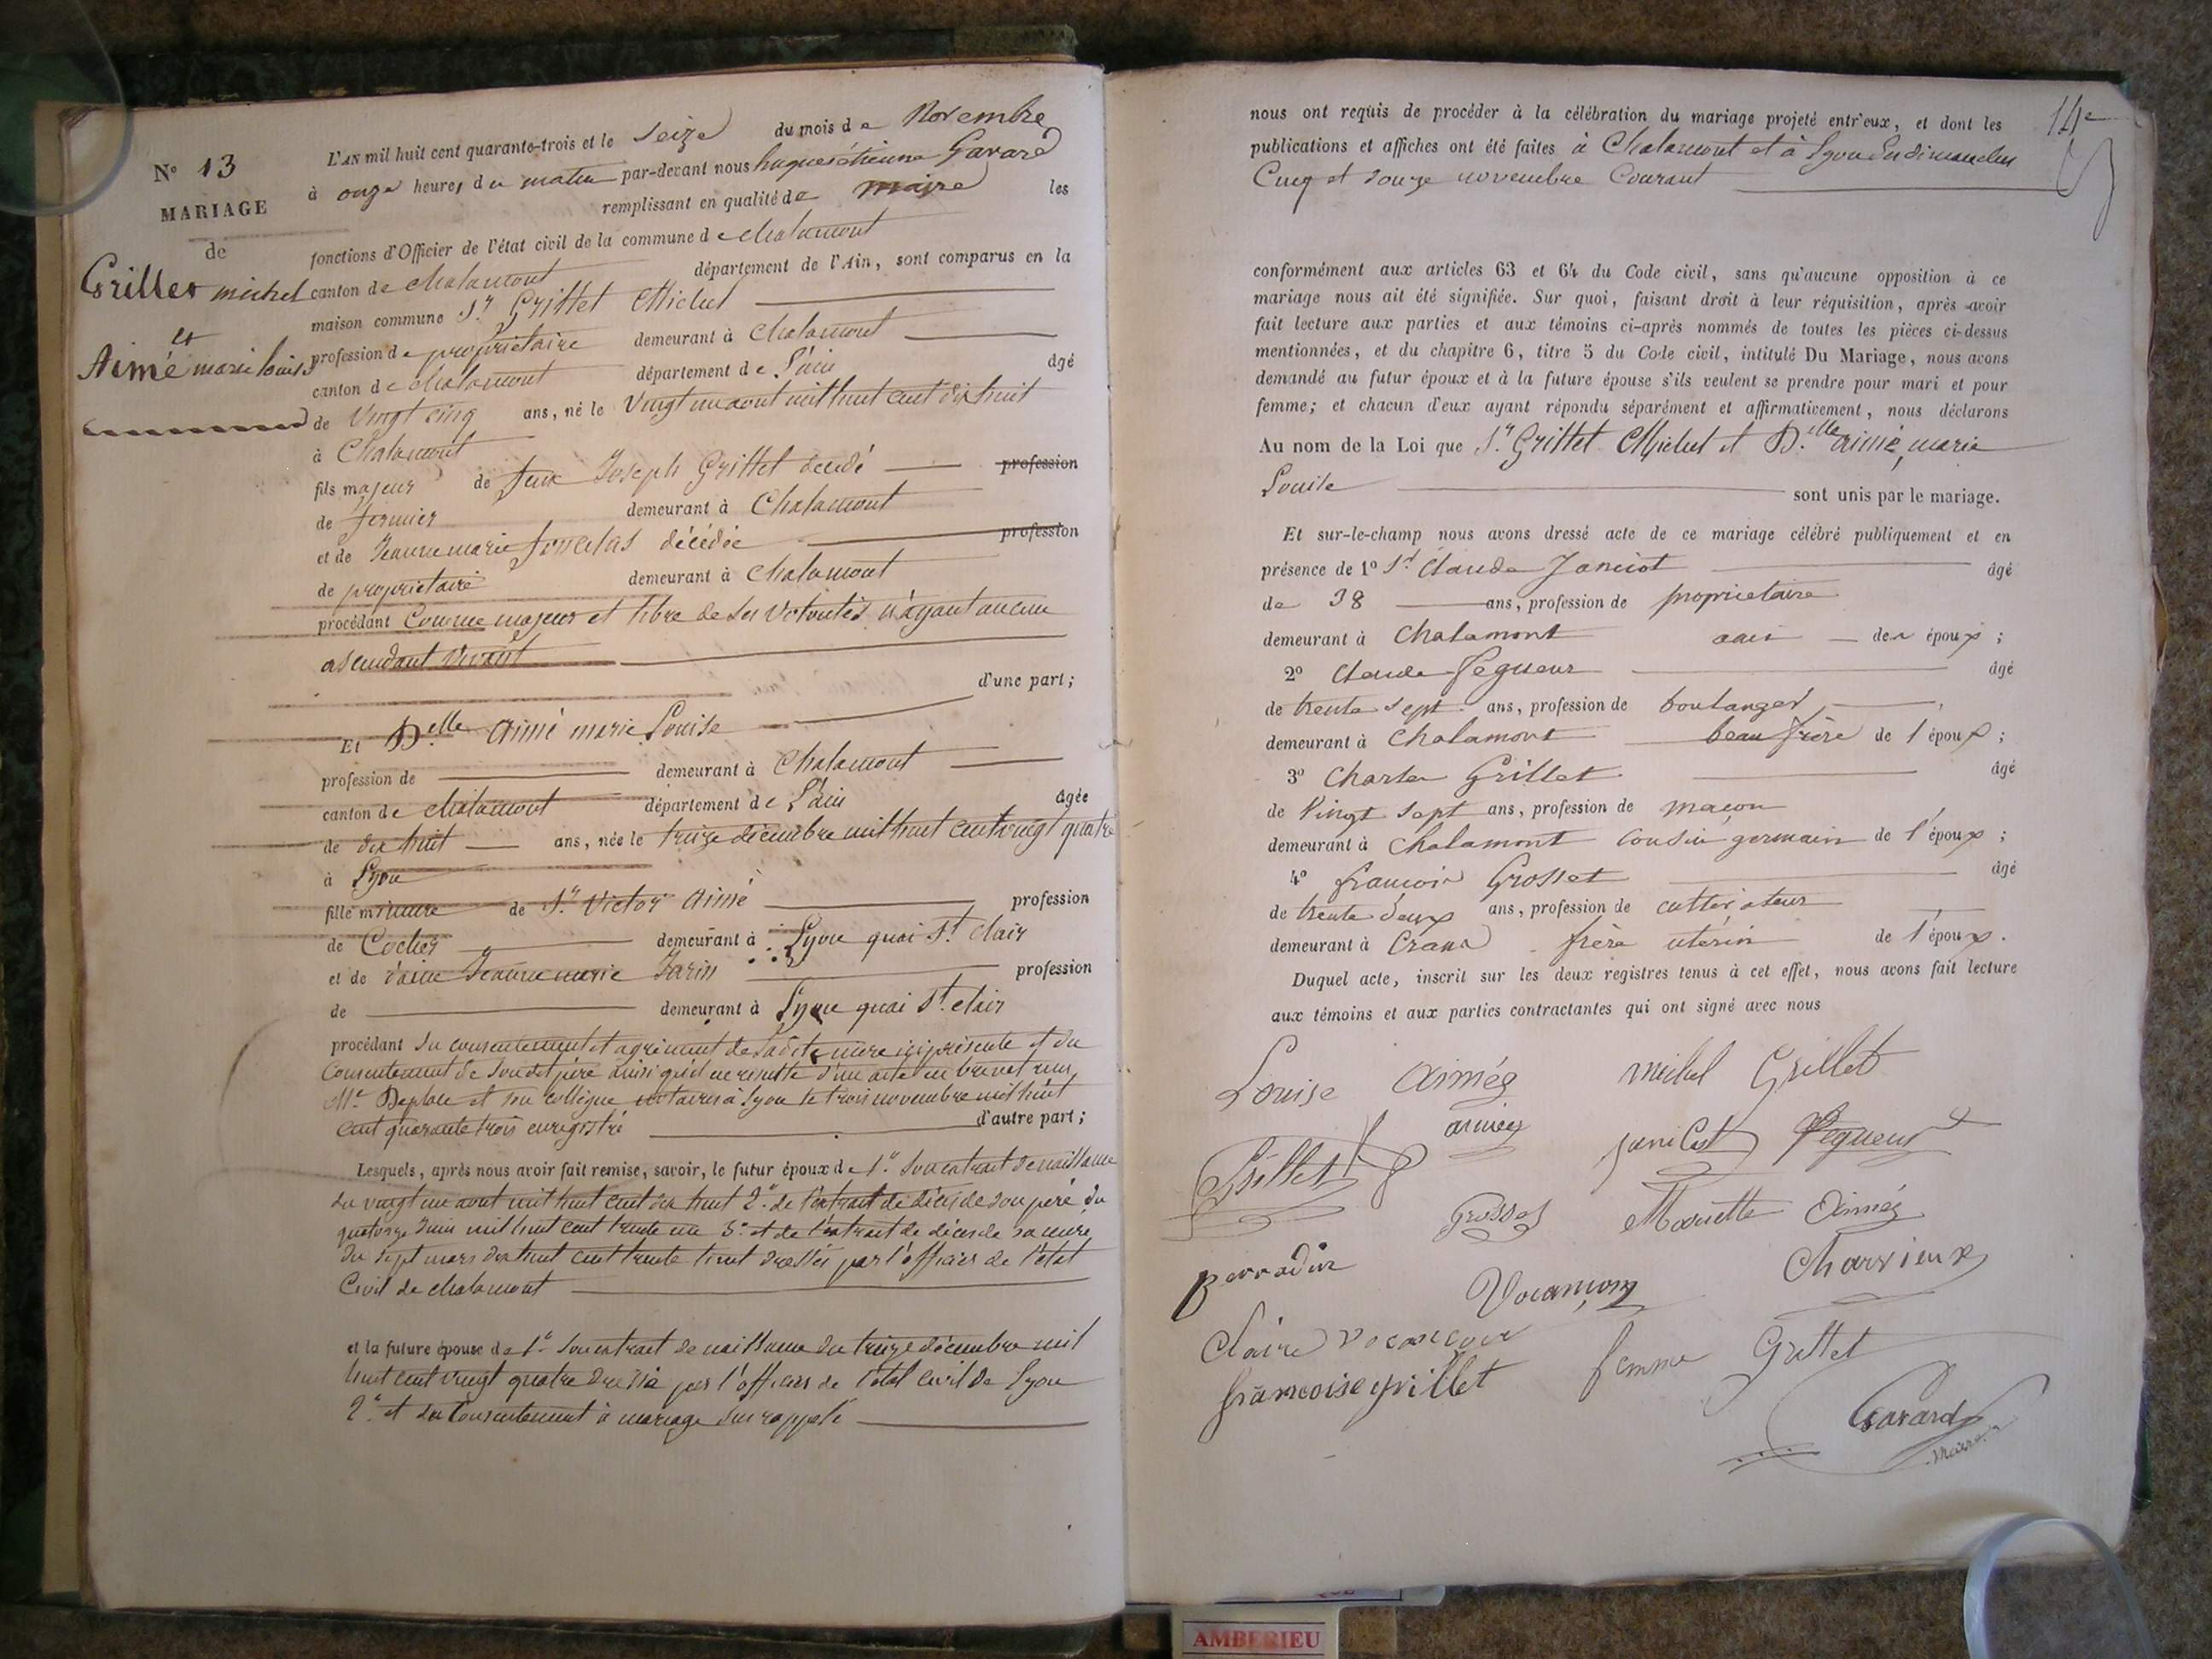 N° 13
MARIAGE
de
Grillet michel
et
Aimé marie louise
L'AN mil huit cent quarante-trois et le seize du mois de Novembre
à onze heures du matin par-devant nous hugues étienne Gavard
remplissant en qualité de maire les
fonctions d'Officier de l'état civil de la commune de chalamont
canton de chalamont département de l'Ain, sont comparus en la
maison commune Sr. Grillet Michel
profession de propriétaire demeurant à Chalamont
canton de chalamont département de l'ain âgé
de Vingt cinq ans, né le Vingt un aout mil huit cent dix huit
à Chalamont
fils majeur de feu Joseph Grillet décédé profession
de fermier demeurant à Chalamont
et de Jeanne marie décédée profession
de propriétaire demeurant à chalamont
procédant Comme majeur et libre de ses volontés n'ayant aucun
ascendant vivant
d'une part;
Et Delle Aimé marie Louise
profession de demeurant à Chalamont
canton de chalamont département de l'ain âgée
de dix huit ans, née le treize décembre mil huit cent vingt quatre
à Lyon
fille mineure de Sr. Victor Aimé profession
de Cocher demeurant à Lyon quai St. Clair
et de Jeanne marie Jarin profession
de demeurant à Lyon quai St. clair
procédant du consentement et agrément de sa dite mère ici présente et du
Consentement de son dit père ainsi qu'il en résulte d'un acte en brevet reçu
Me. Deplace et son collègue notaires à Lyon le trois novembre mil huit
cent quarante trois enregistré d'autre part;
Lesquels, après nous avoir fait remise, savoir, le futur époux de 1° son extrait de naissance
du vingt un aout mil huit cent dix huit 2° de l'extrait de décès de son père du
quatorze Juin mil huit cent trente un 3° et de l'extrait de décès de sa mère
du sept mars dix huit cent trente huit dressés par l'officier de l'état
Civil de chalamont
et la future épouse de 1° son extrait de naissance du treize décembre mil
huit cent vingt quatre dressé par l'officier de l'état civil de Lyon
2° et du Consentement à mariage sus rappelé
14e
nous ont requis de procéder à la célébration du mariage projeté entr'eux, et dont les
publications et affiches ont été faites à Chalamont et à Lyon les dimanches
Cinq et douze novembre Courant
conformément aux articles 63 et 64 du Code civil, sans qu'aucune opposition à ce
mariage nous ait été signifiée. Sur quoi, faisant droit à leur réquisition, après avoir
fait lecture aux parties et aux témoins ci-après nommés de toutes les pièces ci-dessus
mentionnées, et du chapitre 6, titre 5 du Code civil, intitulé Du Mariage, nous avons
demandé au futur époux et à la future épouse s'ils veulent se prendre pour mari et pour
femme; et chacun d'eux ayant répondu séparément et affirmativement, nous déclarons
Au nom de la Loi que Sr. Grillet Michel et Dlle aimé, marie
Louise sont unis par le mariage.
Et sur-le-champ nous avons dressé acte de ce mariage célébré publiquement et en
présence de 1° Sr. Claude Janicot âgé
de 38 ans, profession de propriétaire
demeurant à Chalamont ami des époux;
2° Claude Pegueur âgé
de trente sept ans, profession de boulanger
demeurant à Chalamont beau frère de l'époux;
3° Charles Grillet âgé
de Vingt sept ans, profession de maçon
demeurant à Chalamont cousin germain de l'époux;
4° françois Grosset âgé
de trente deux ans, profession de cultivateur
demeurant à Crans frère utérin de l'époux.
Duquel acte, inscrit sur les deux registres tenus à cet effet, nous avons fait lecture
aux témoins et aux parties contractantes qui ont signé avec nous
Louise Aimée michel Grillet
aimée
Grillet Janicot Pegueur
Grosset Mariette Aimée
perradin Vocanson Charvieux
Claire vocançon femme Grillet
françoise grillet
Gavard
Maire
AMBERIEU